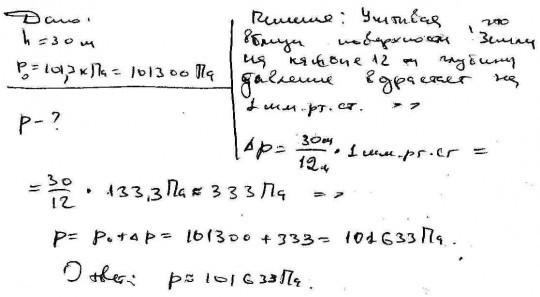 Дано:
h = 30 м
P₀ = 101,3 кПа = 101300 Па
P - ?
Решение: Учитывая, что
вблизи поверхности Земли
на каждые 12 м глубины
давление возрастает на
1 мм.рт.ст. =>
Δp = 30м/12м · 1 мм.рт.ст =
= 30/12 · 133,3 Па ≈ 333 Па =>
p = p₀ + Δp = 101300 + 333 = 101633 Па.
Ответ: p = 101633 Па.